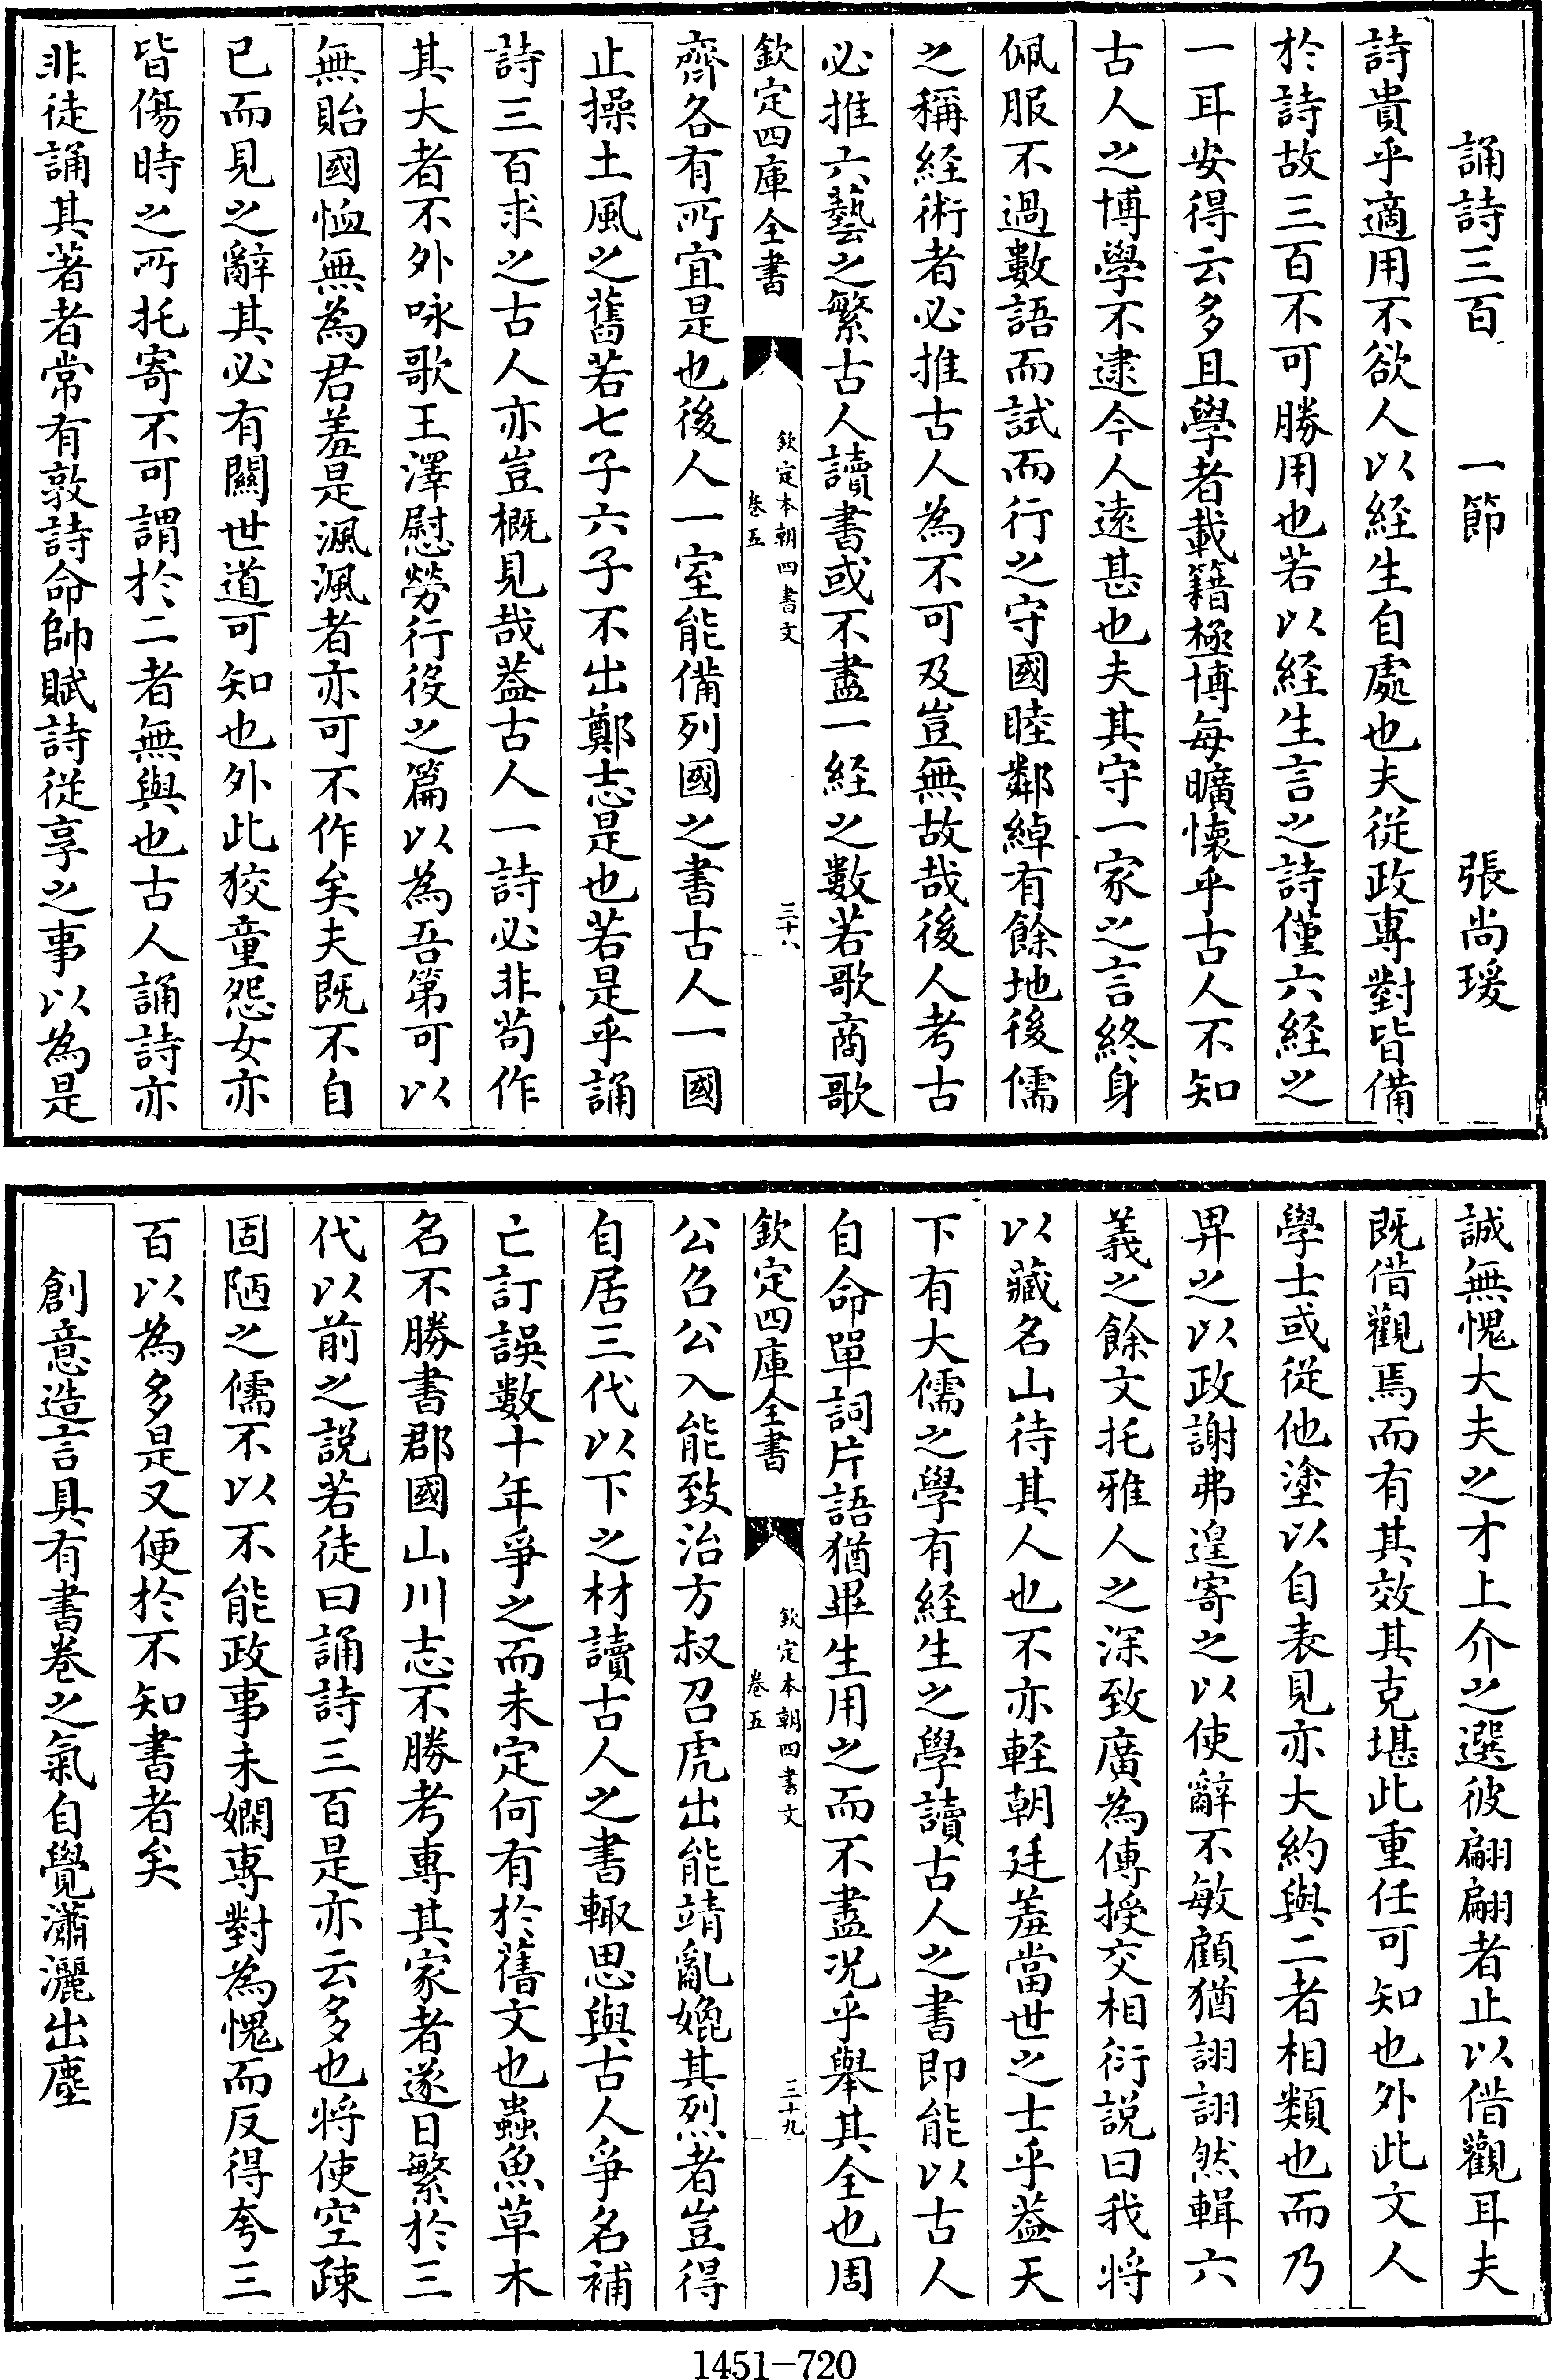 誦詩三百　一節　張尚瑗
詩貴乎適用不欲人以経生自處也夫從政專對皆備
於詩故三百不可勝用也若以経生言之詩僅六経之
一耳安得云多且學者載籍極博每曠懷乎古人不知
古人之博學不逮今人遠甚也夫其守一家之言終身
佩服不過數語而試而行之守國睦鄰綽有餘地後儒
之稱経術者必推古人為不可及豈無故哉後人考古
必推六藝之繁古人讀書或不盡一経之數若歌商歌
欽定四庫全書
欽定本朝四書文
卷五
三十八
齊各有所宜是也後人一室能備列國之書古人一國
止操土風之舊若七子六子不出鄭志是也若是乎誦
詩三百求之古人亦豈概見哉葢古人一詩必非茍作
其大者不外咏歌王澤慰勞行役之篇以為吾第可以
無貽國恤無為君羞是渢渢者亦可不作矣夫既不自
已而見之辭其必有關世道可知也外此狡童怨女亦
皆傷時之所托寄不可謂於二者無與也古人誦詩亦
非徒誦其著者常有敦詩命帥賦詩従享之事以為是
誠無愧大夫之才上介之選彼翩翩者止以借觀耳夫
既借觀焉而有其效其克堪此重任可知也外此文人
學士或從他塗以自表見亦大約與二者相類也而乃
畀之以政謝弗遑寄之以使辭不敏顧猶詡詡然輯六
義之餘文托雅人之深致廣為傳授交相衍説曰我將
以藏名山待其人也不亦軽朝廷羞當世之士乎葢天
下有大儒之學有経生之學讀古人之書即能以古人
自命單詞片語猶畢生用之而不盡況乎舉其全也周
欽定四庫全書
欽定本朝四書文
卷五
三十九
公召公入能致治方叔召虎出能靖亂媲其烈者豈得
自居三代以下之材讀古人之書輙思與古人爭名補
亡訂誤數十年爭之而未定何有於舊文也蟲魚草木
名不勝書郡國山川志不勝考專其家者遂日繁於三
代以前之説若徒曰誦詩三百是亦云多也將使空疎
固陋之儒不以不能政事未嫻專對為愧而反得夸三
百以為多是又便於不知書者矣
創意造言具有書卷之氣自覺瀟灑出塵
1451-720